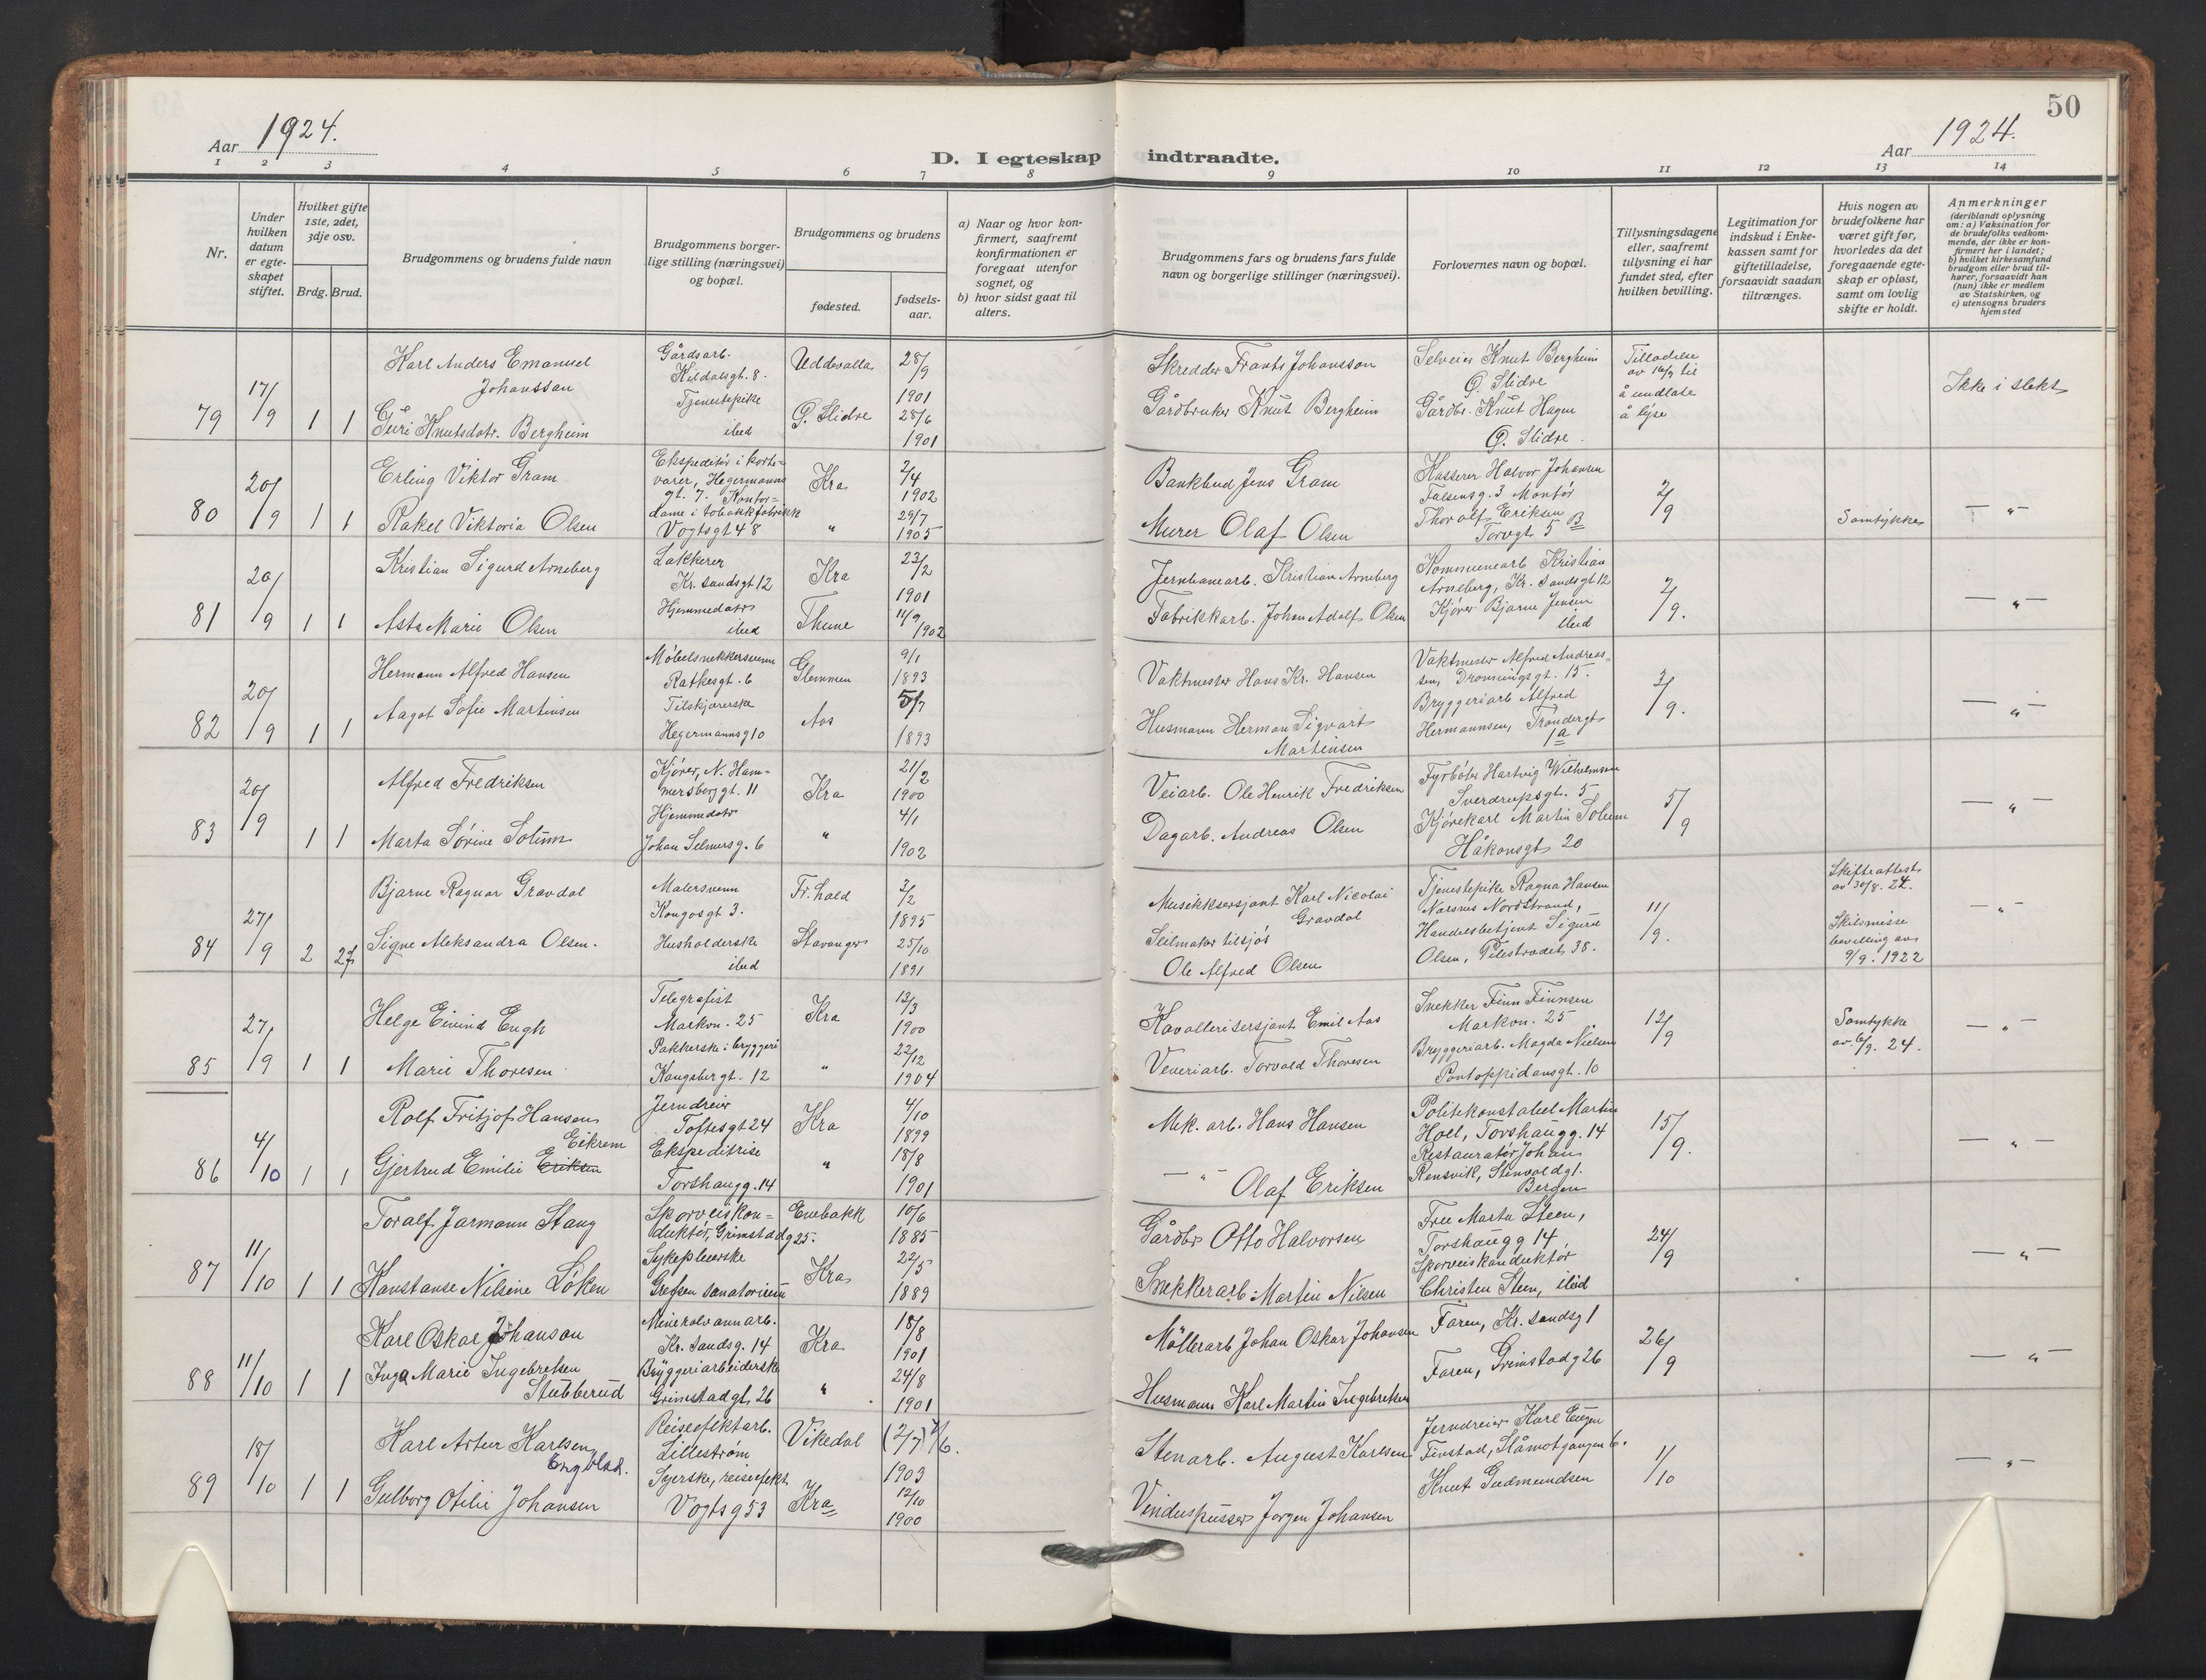 50
Aar 1924.
D. I egteskap indtraadte.
Aar 1924.
1 2 3 4 5 6 7 8 9 10 11 12 13 14
Nr.
Under
hvilken
datum
er egte-
skapet
stiftet.
Hvilket gifte
1ste, 2det,
3dje osv.
Brdg. Brud.
Brudgommens og brudens fulde navn
Brudgommens borger-
lige stilling (næringsvei)
og bopæl.
Brudgommens og brudens
fødested.
fødsels-
aar.
a) Naar og hvor kon-
firmert, saafremt
konfirmationen er
foregaat utenfor
sognet, og
b) hvor sidst gaat til
alters.
Brudgommens fars og brudens fars fulde
navn og borgerlige stillinger (næringsvei).
Forlovernes navn og bopæl.
Tillysningsdagene
eller, saafremt
tillysning ei har
fundet sted, efter
hvilken bevilling.
Legitimation for
indskud i Enke-
kassen samt for
giftetilladelse,
forsaavidt saadan
tiltrænges.
Hvis nogen av
brudefolkene har
været gift før,
hvorledes da det
foregaaende egte-
skap er opløst,
samt om lovlig
skifte er holdt.
Anmerkninger
(deriblandt oplysning
om: a) Vaksination for
de brudefolks vedkom-
mende, der ikke er kon-
firmert her i landet;
b) hvilket kirkesamfund
brudgom eller brud til-
hører, forsaavidt han
(hun) ikke er medlem
av Statskirken, og
c) utensogns bruders
hjemsted
79
17/9
1 1
Karl Anders Emanuel
Johanssan
Guri Knutsdatr. Bergheim
Gårdsarb.
Kildalsgt. 8.
Tjenestepike
ibid
Uddevalla
Ø. Slidre
28/9
1901
28/6
1901
Skredder Frants Johansson
Gårdbruker Knut Bergheim
Selveier Knut Bergheim
Ø. Slidre
Gårdbr. Knut Hagen
Ø. Slidre.
Tilladelse
av 16/9 til
å undlate
å lyse
Ikke i slekt
80
20/9
1 1
Erling Viktor Gram
Rakel Viktoria Olsen
Ekspeditør i korte-
varer, Hegermanns
gt. 7. Kontor-
dame i tobakkfabrikk
Vogtsgt 48
Kra
"
2/4
1902
29/7
1905
Bankbud Jens Gram
Murer Olaf Olsen
Kasserer Halvor Johansen
Falsensg. 3 Montør
Thoralf Eriksen
Torvgt 5 B
2/9
Samtykke
— " —
81
20/9
1 1
Kristian Sigurd Arneberg
Asta Marie Olsen
Lakkerer
Kr. sandsgt 12
Hjemmedatr
ibid
Kra
Thune
23/2
1901
14/9
1902
Jernbanearb. Kristian Arneberg
Fabrikkarb. Johan Adolf Olsen
Kommunearb Kristian
Arneberg, Kr. sandsgt 12
Kjører Bjarne Jensen
ibid
2/9.
— " —
82
20/9
1 1
Hermann Alfred Hansen
Aagot Sofie Martinsen
Møbelsnekkersvenn
Ratkesgt. 6
Tilskjærerske
Hegermannsg 10
Glemmen
Aas
9/1
1893
5/7
1893
Vaktmester Hans Kr. Hansen
Husmann Herman Sigvart
Martinsen
Vaktmester Alfred Andreas-
sen, Dronningsgt. 15.
Bryggeriarb Alfred
Hermannsen, Trondergt
1a
3/9.
— " —
83
20/9
1 1
Alfred Fredriksen
Marta Sørine Solum
Kjører, N. Ham-
mersborggt. 11
Hjemmedatr
Johan Selmersg. 6
Kra
"
21/2
1900
4/1
1902
Veiarb. Ole Henrik Fredriksen
Dagarb. Andreas Olsen
Fyrbøter Hartvig Wilhelmsen
Sverdrupsgt. 5
Kjørekarl Martin Solum
Håkonsgt 20
5/9
— " —
84
27/9
2 2
Bjarne Ragnar Gravdal
Signe Aleksandra Olsen.
Malersvenn
Kongosgt 3.
Husholderske
ibid
Fr. hald
Stavanger
3/2
1895
25/10
1891
Musikksersjant Karl Nicolai
Gravdal
Seilmaker tilsjøs
Ole Alfred Olsen
Tjenestepike Ragna Hansen
Narsnes Nordstrand,
Handelsbetjent Sigurd
Olsen, Pilestrædet 38.
11/9.
Skifteattest
av 30/8. 24.
Skilsmisse
bevilling av
9/9. 1922
— " —
85
27/9
1 1
Helge Eivind Engh
Marie Thoresen
Telegrafist
Markvn. 25
Pakkerske i bryggeri
Kongsbergt. 12
Kra
"
13/3
1900
22/12
1904
Kavallerisersjant Emil Aas
Veveriarb. Torvald Thoresen
Snekker Finn Finnsen
Markvn. 25
Bryggeriarb. Magda Nielsen
Pontoppidansgt. 10
12/9
Samtykke
av 6/9. 24.
— " —
86
4/10
1 1
Rolf Fritjof Hansen
Eikrem
Gjertrud Emilie Eriksen
Jerndreier
Toftesgt 24
Ekspeditrise
Torshaugg. 14
Kra
"
4/10
1899
18/8
1901
Mek. arb. Hans Hansen
— " Olaf Eriksen
Politikonstabel Martin
Holl, Torshaugg. 14
Restauratør Johan
Rensvik, Stenvoldg 1.
Bergen
15/9.
— " —
87
11/10
1 1
Toralf Jarmann Stang
Konstanse Nilsine Løken
Sporveiskon-
duktør, Grimstadg 25.
Sykepleierske
Grefsen sanatorium
Enebakk
Kra
10/6
1885
22/5
1889
Gårdbr Otto Halvorsen
Snekkerarb. Martin Nilsen
Frue Marta Steen,
Torshaugg 14
Sporveiskonduktør
Christen Steen, ibid
24/9
— " —
88
11/10
1 1
Karl Oskar Johansen
Inga Marie Ingebretsen
Stubberud
Mineralvannarb.
Kr. sandsg. 14
Bryggeriarbeiderske
Grimstadgt. 26
Kra
"
18/8
1901
24/8
1901
Møllerarb Johan Oskar Johansen
Husmann Karl Martin Ingebretsen
Faren, Kr. sandsg 1
Faren, Grimstadg 26
26/9
— " —
89
18/10
1 1
Karl Artur Karlsen
Engblad.
Gulborg Otilie Johansen
Reiseefektarb.
Lillestrøm
Syerske, reiseefekt
Vogtsg 53
Vikedal
Kra
(2/7) 7/6.
1903
12/10
1900
Stenarb. August Karlsen
Vinduspusser Jørgen Johansen
Jerndreier Karl Eugen
Finstad, Slåmotgangen 6.
Knut Gudmundsen
1/10
— " —